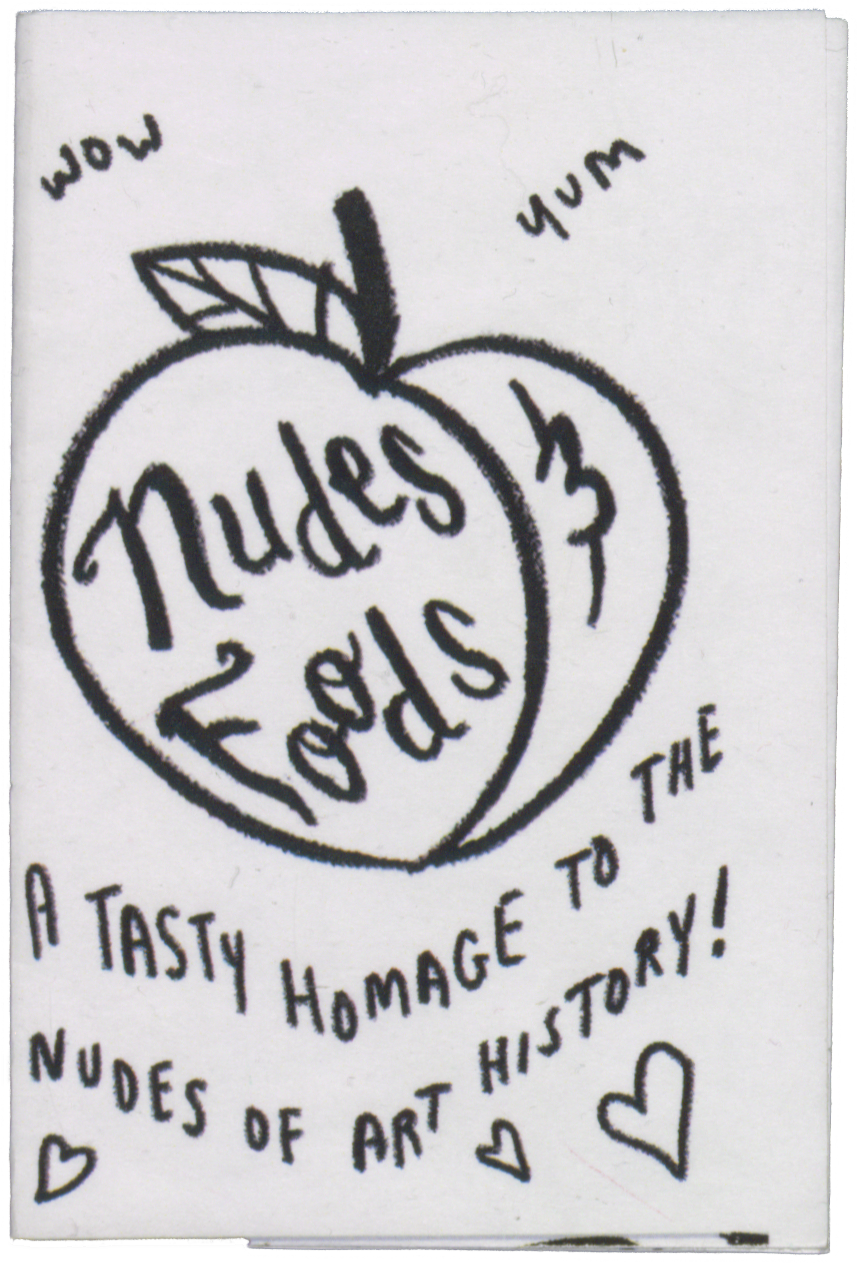 WOW
YUM
Nudes
&
Foods
A TASTY HOMAGE TO THE
NUDES OF ART HISTORY!